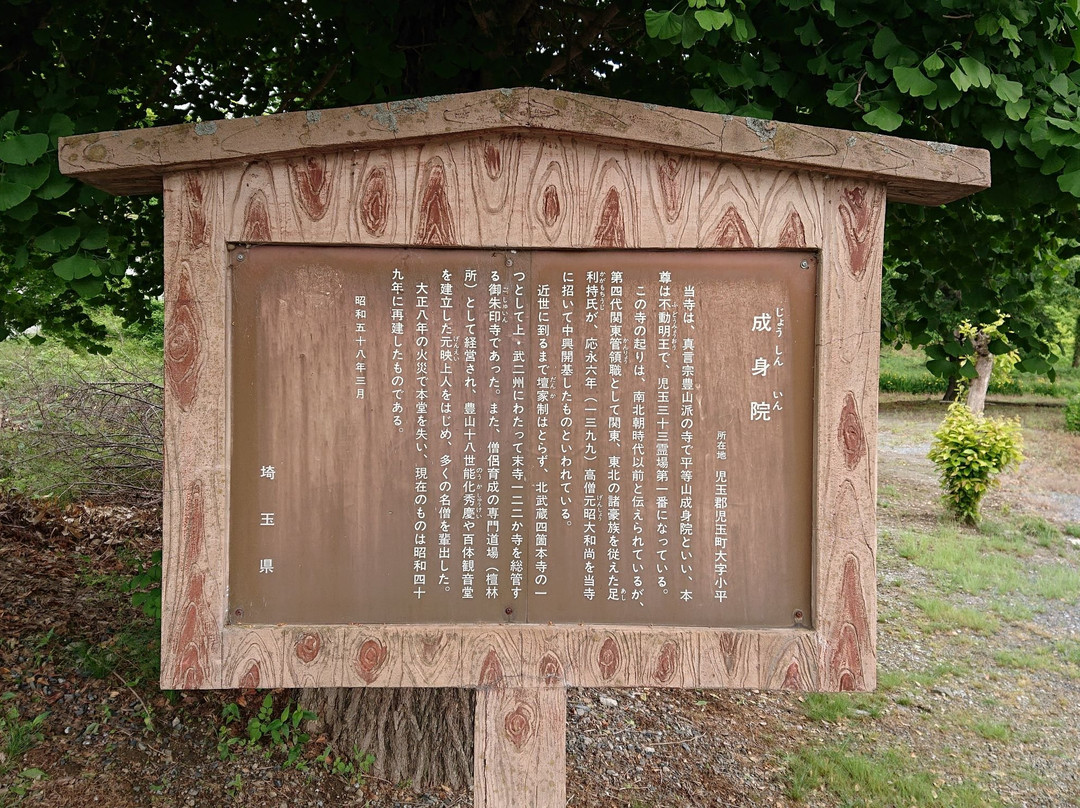 成身院
じょうしんいん
所在地　児玉郡児玉町大字小平
当寺は、真言宗豊山派の寺で平等山成身院といい、本
尊は不動明王で、児玉三十三霊場第一番になっている。
この寺の起りは、南北朝時代以前と伝えられているが、
第四代関東管領職として関東、東北の諸豪族を従えた足
利持氏が、応永六年（一三九九）高僧元昭大和尚を当寺
に招いて中興開基したものといわれている。
近世に到るまで壇家制はとらず、北武蔵四箇本寺の一
つとして上・武二州にわたって末寺一二二か寺を総管す
る御朱印寺であった。また、僧侶育成の専門道場（檀林
所）として経営され、豊山十八世能化秀慶や百体観音堂
を建立した元映上人をはじめ、多くの名僧を輩出した。
大正八年の火災で本堂を失い、現在のものは昭和四十
九年に再建したものである。
昭和五十八年三月
埼玉県